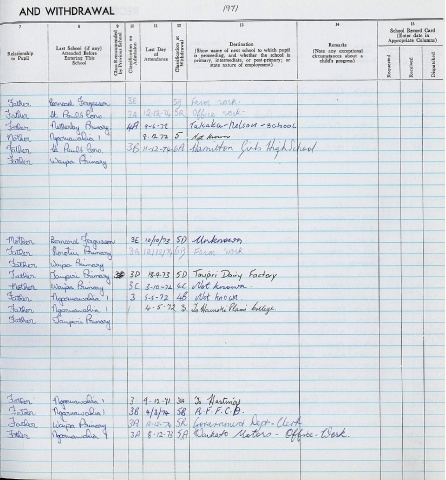 AND WITHDRAWAL
1971
7 8 9 10 11 12 13 14 15
Relationship to Pupil
Last School (if any) Attended Before Entering This School
Class Recommended by Previous School
Classification on Admission
Last Day of Attendance
Classification at Withdrawal
Destination
(Show name of next school to which pupil is proceeding, and whether the school is primary, intermediate, or post-primary; or state nature of employment)
Remarks
(Note any exceptional circumstances about a child's progress)
School Record Card
(Enter date in Appropriate Column)
Requested
Received
Despatched
Father Bernard Fergusson 3E 5J Farm work.
Father St Pauls Conv. 3A 12-12-74 5A Office work
Father Netherby Primary 4A 9-6-72 Takaka-Nelson-School
Mother Ngaruawahia 1 8-12-72 5 Not known
Father St Pauls Conv. 3B 11-12-74 6A Hamilton Girls High School
Father Waipa Primary
Mother Bernard Fergusson 3E 10/10/73 5D Unknown
Father Primary 3G work
Father Waipa Primary
Father Taupiri Primary 3D 18-9-73 5D Taupiri Dairy Factory
Mother Waipa Primary 3C 3-10-72 4C Not known
Father Ngaruawahia 1 3 5-5-72 4B Not known
Father Ngaruawahia 1 4-5-72 3 To Hauraki Plains College
Father Taupiri Primary
Father Ngaruawahia 1 3 9-12-71 3A To Hastings
Father Ngaruawahia 1 3B 4/3/74 5B A.F.F.C.O.
Father Waipa Primary 3A 5A Government Dept-Clerk
Father Ngaruawahia 1 3A 8-12-73 5A Waikato Motors - Office Work.